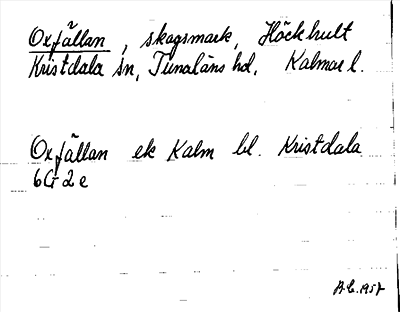 Oxfällan, skogsmark, Höckhult
Kristdala sn, Tunaläns hd, Kalmar l.
Oxfällan ek Kalm bl. Kristdala
6G 2e
A.C. 1957